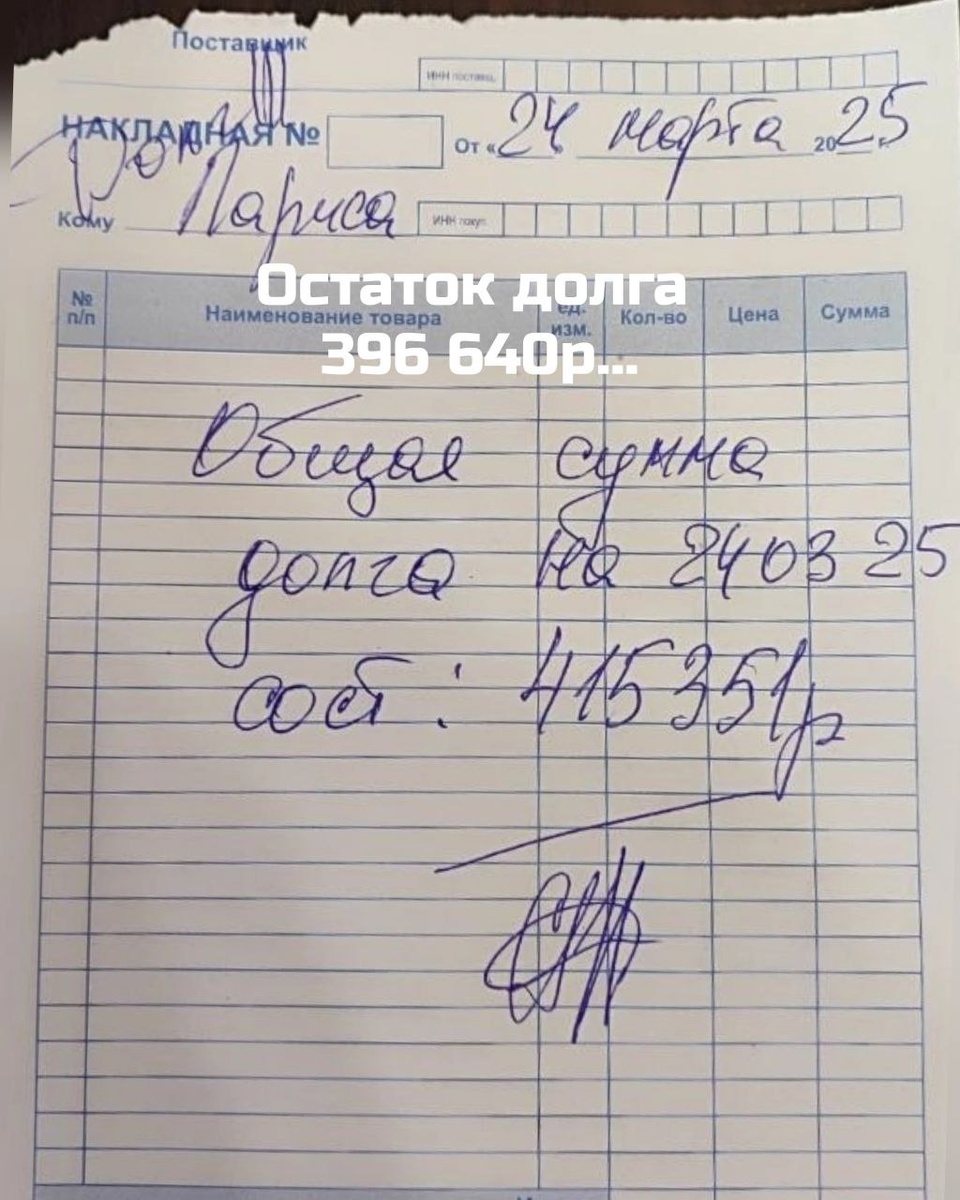 Поставщик
ИНН поставщ.
НАКЛАДНАЯ № От « 24 » марта 2025 г.
Кому Лариса ИНН покуп.
Остаток долга
396 640р...
№ п/п Наименование товара ед. изм. Кол-во Цена Сумма
Общая сумма
долга на 24 03 25
сост : 415351р